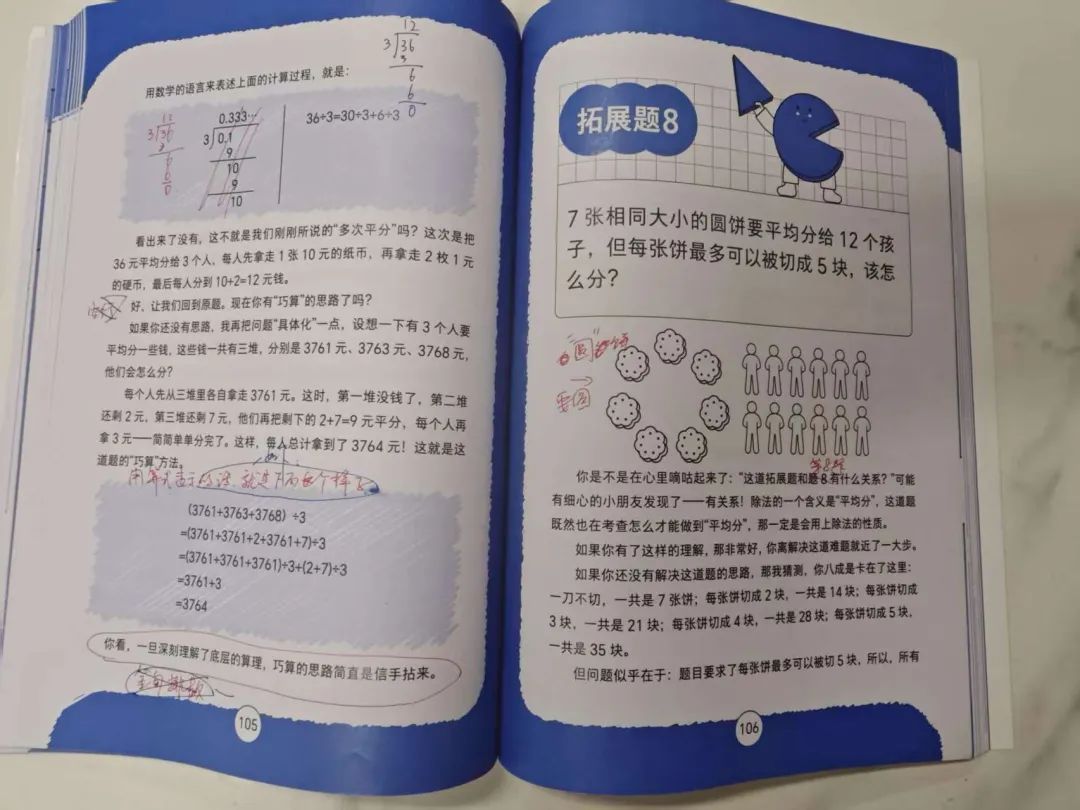 用数学的语言来表述上面的计算过程，就是：
12
3)36
3
6
6
0
12
3)36
3
6
6
0
0.333…
3)0.1
9
10
9
10
36÷3=30÷3+6÷3
看出来了没有，这不就是我们刚刚所说的“多次平分”吗？这次是把
36元平均分给3个人，每人先拿走1张10元的纸币，再拿走2枚1元
的硬币，最后每人分到10+2=12元钱。
好，让我们回到原题。现在你有“巧算”的思路了吗？
如果你还没有思路，我再把问题“具体化”一点，设想一下有3个人要
平均分一些钱，这些钱一共有三堆，分别是3761元、3763元、3768元，
他们会怎么分？
每个人先从三堆里各自拿走3761元。这时，第一堆没钱了，第二堆
还剩2元，第三堆还剩7元，他们再把剩下的2+7=9元平分，每个人再
拿3元——简简单单分完了。这样，每人总计拿到了3764元！这就是这
道题的“巧算”方法。
(3761+3763+3768) ÷3
=(3761+3761+2+3761+7)÷3
=(3761+3761+3761)÷3+(2+7)÷3
=3761+3
=3764
你看，一旦深刻理解了底层的算理，巧算的思路简直是信手拈来。
105
拓展题8
7张相同大小的圆饼要平均分给12个孩
子，但每张饼最多可以被切成5块，该怎
么分？
“圆”饼
要圆
第8题
你是不是在心里嘀咕起来了：“这道拓展题和题8有什么关系？”可能
有细心的小朋友发现了——有关系！除法的一个含义是“平均分”，这道题
既然也在考查怎么才能做到“平均分”，那一定是会用上除法的性质。
如果你有了这样的理解，那非常好，你离解决这道难题就近了一大步。
如果你还没有解决这道题的思路，那我猜测，你八成是卡在了这里：
一刀不切，一共是7张饼；每张饼切成2块，一共是14块；每张饼切成
3块，一共是21块；每张饼切成4块，一共是28块；每张饼切成5块，
一共是35块。
但问题似乎在于：题目要求了每张饼最多可以被切5块，所以，所有
106